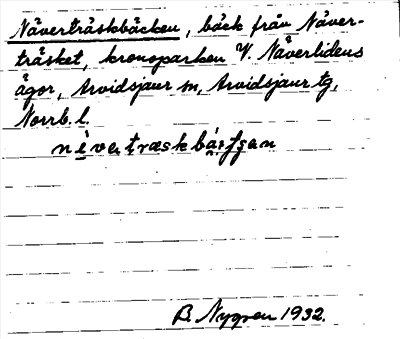 Näverträskbäcken, bäck från Näver-
träsket, kronoparken V. Näverlidens
ägor, Arvidsjaur sn, Arvidsjaur tg,
Norrb. l.
B. Nygren 1932.